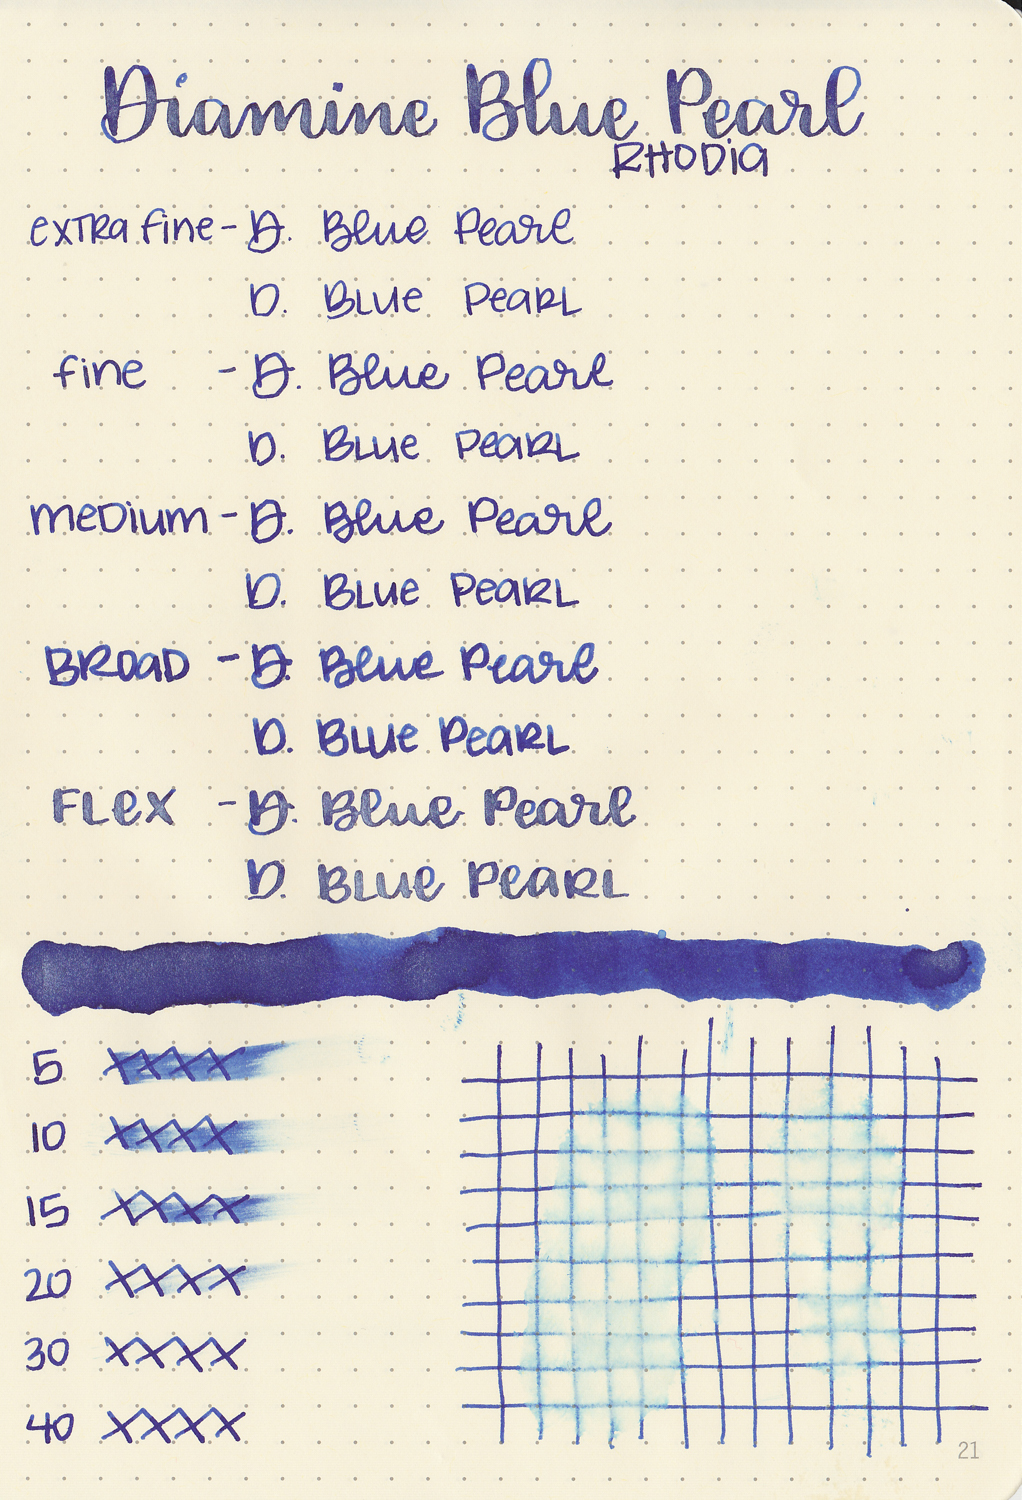 Diamine Blue Pearl
RHODIA
extra fine - D. Blue Pearl
D. Blue Pearl
fine - D. Blue Pearl
D. Blue Pearl
medium - D. Blue Pearl
D. Blue Pearl
Broad - D. Blue Pearl
D. Blue Pearl
Flex - D. Blue Pearl
D. Blue Pearl
5 XXXX
10 XXXX
15 XXXX
20 XXXX
30 XXXX
40 XXXX
21